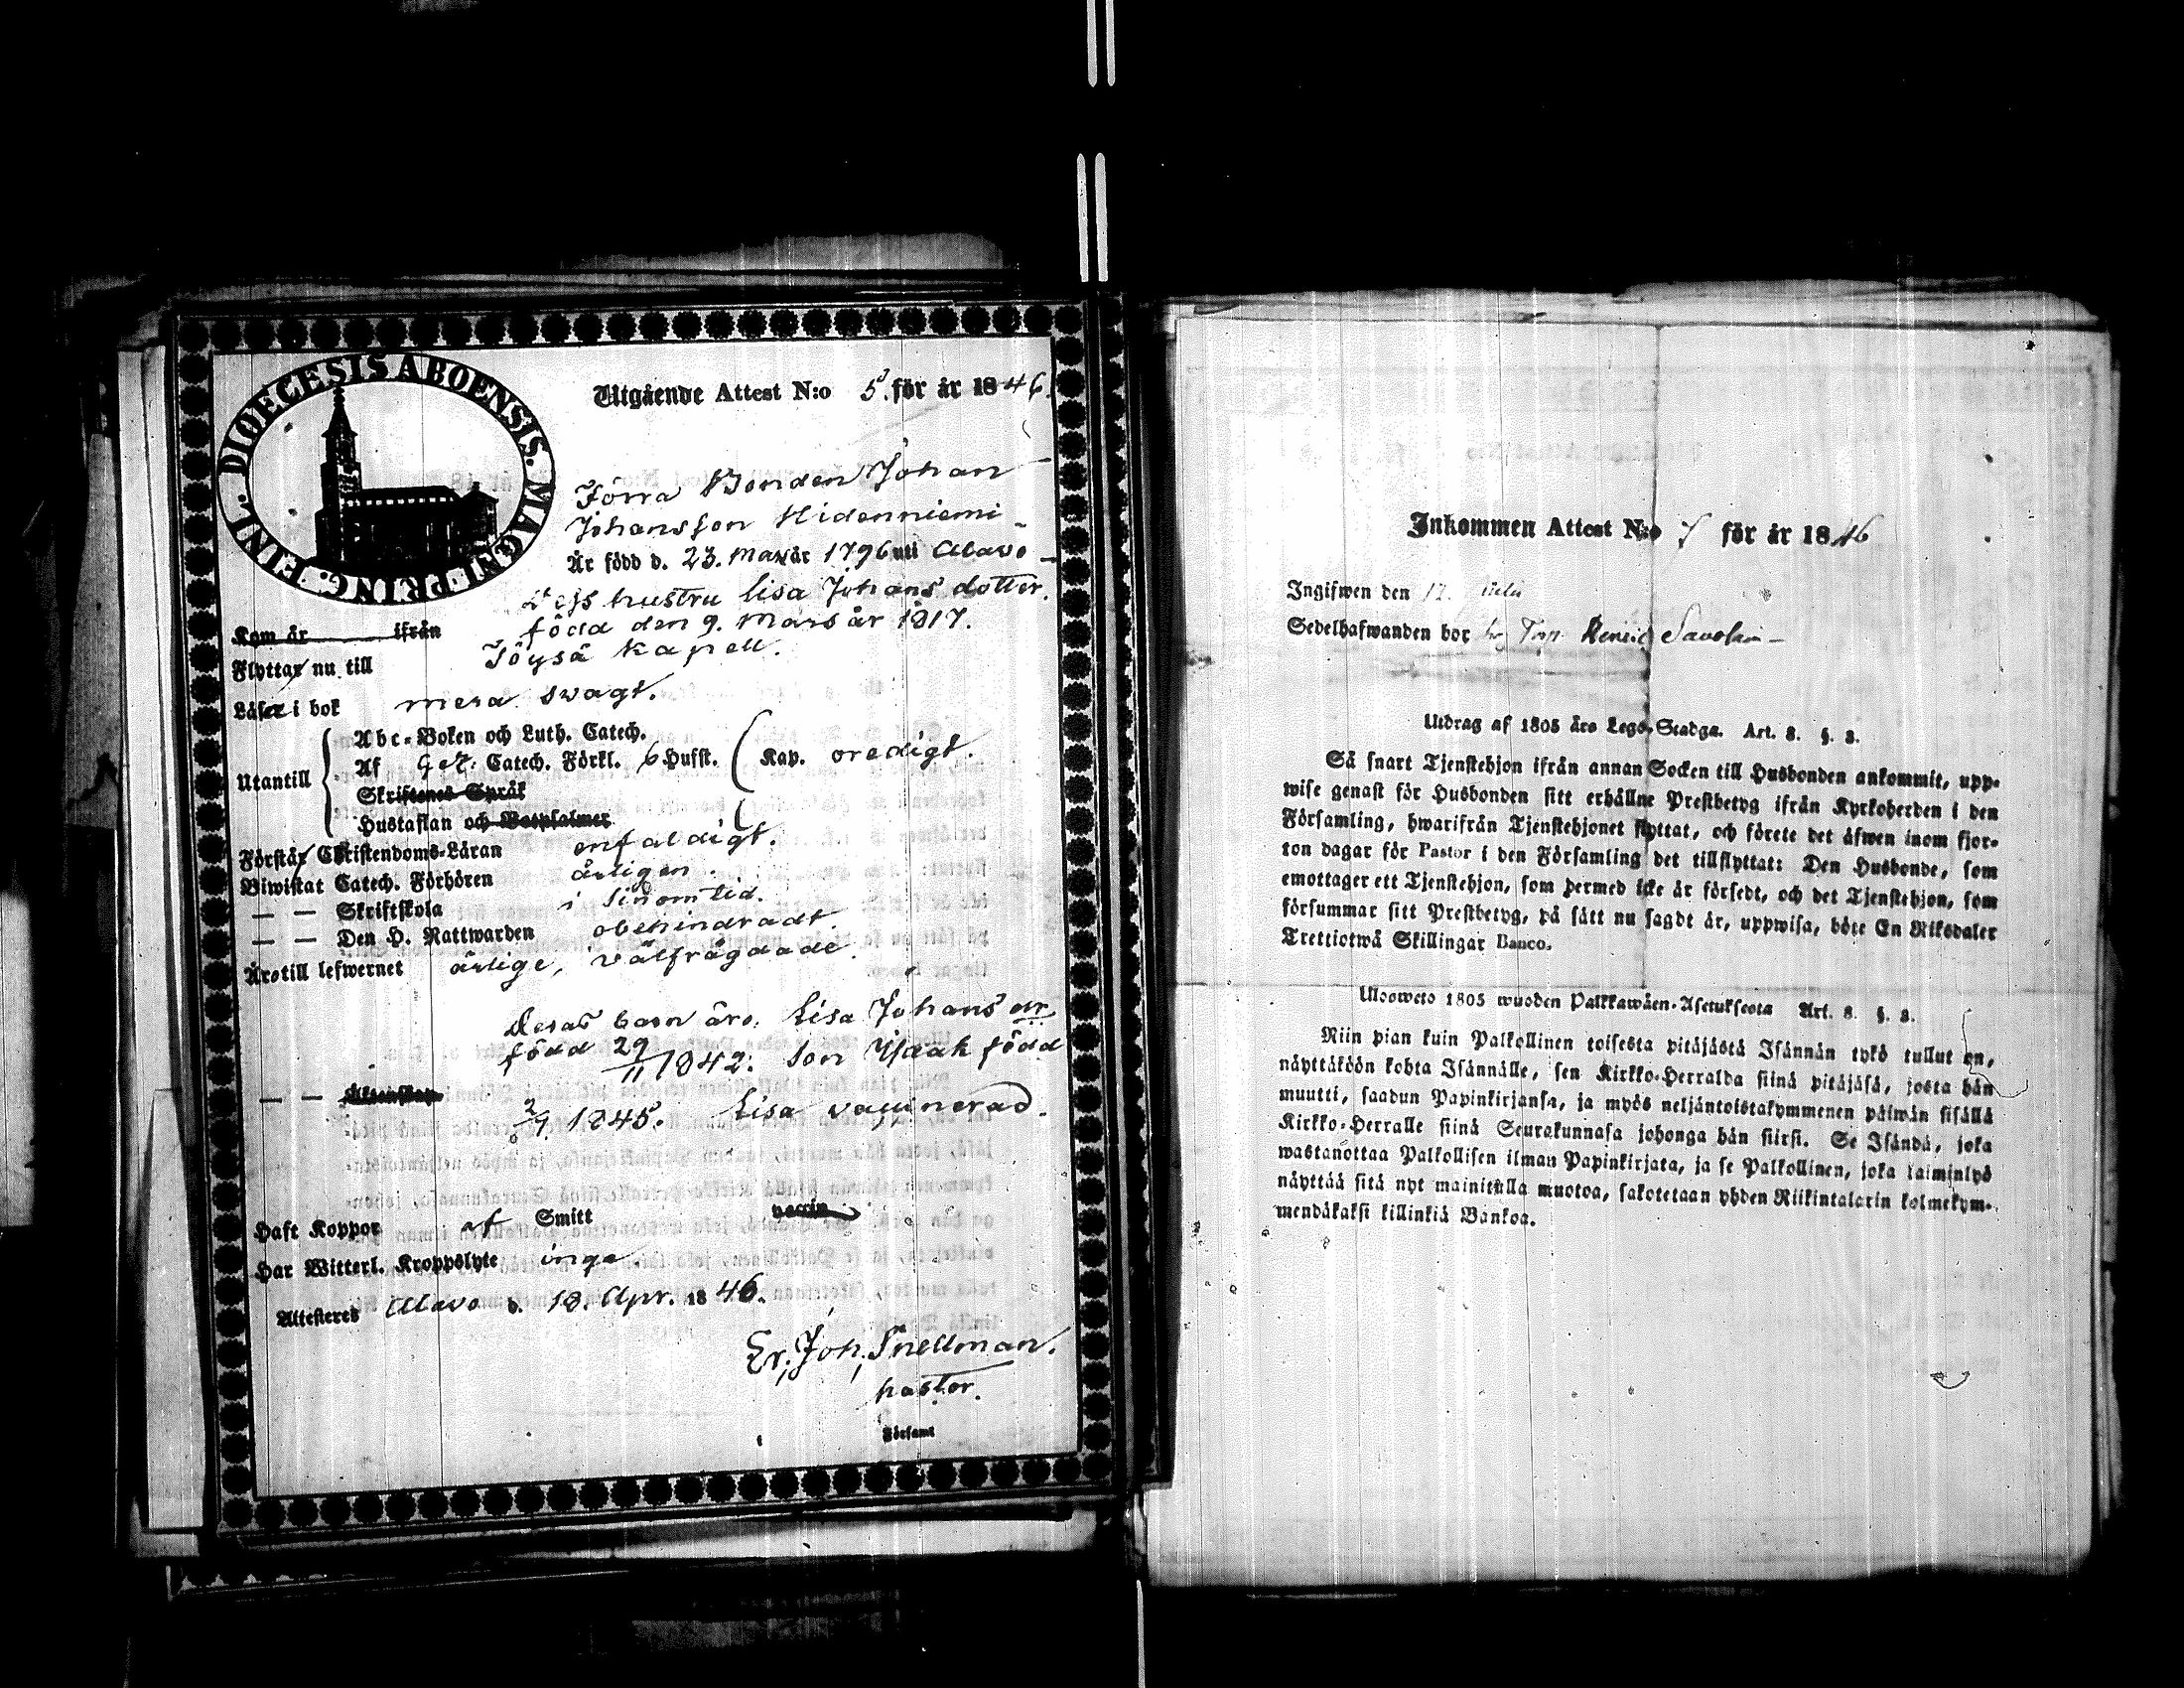 DIOECESIS ABOENSIS. MAGNI PRINC. FINL.
Utgående Attest N:o 5. för år 1846.
Förra Bonden Johan
Johansson Hidenniemi
Är född d. 23. Mars år 1796 uti Alavo
Dess hustru Lisa Johans dotter.
född den 9. Mars år 1817.
Kom år ifrån
Flyttar nu till Töysä Kapell.
Läsa i bok mera swagt.
Utantill
Abc-Boken och Luth. Catech.
Af Gez. Catech. Förkl. 6 Hufst. Kap. oredigt.
Skriftenes Språk
Hustaflan och Botpsalmer
Förstår Christendoms-Läran enfaldigt.
Biwistat Catech. Förhören årligen.
— — Skriftskola i sinom tid.
— — Den H. Nattwarden obehindradt.
Äro till lefwernet ärlige, välfrägdade.
Deras barn äro: Lisa Johans dr
född 29/11 1842. Son Isaak född
— — Äktenskap 2/9 1845. Lisa vaccinerad.
Haft Koppor af Smitt vaccin
Har Witterl. Kroppslyte inga
Attesteres Alavo d. 18. Apr. 1846.
Er. Joh. Snellman.
pastor.
Församl
Inkommen Attest N:o 7 för år 1846
Ingifwen den 12.
Sedelhafwanden bor Savola
Utdrag af 1805 års Lego-Stadga. Art. 8. §. 3.
Så snart Tjenstehjon ifrån annan Socken till Husbonden ankommit, upp-
wise genast för Husbonden sitt erhållne Prestbetyg ifrån Kyrkoherden i den
Församling, hwarifrån Tjenstehjonet flyttat, och förete det äfwen inom fjor-
ton dagar för Pastor i den Församling det tillflyttat: Den Husbonde, som
emottager ett Tjenstehjon, som dermed icke är försedt, och det Tjenstehjon, som
försummar sitt Prestbetyg, på sätt nu sagdt är, uppwisa, böte En Riksdaler
Trettiotwå Skillingar Banco.
Ulosweto 1805 wuoden Palkkawäen-Asetuksesta Art. 8. §. 3.
Niin pian kuin Palkollinen toisesta pitäjästä Isännän tykö tullut on,
näyttäköön kohta Isännälle, sen Kirkko-Herralda siinä pitäjäsä, josta hän
muutti, saadun Papinkirjansa, ja myös neljäntoistakymmenen päiwän sisällä
Kirkko-Herralle siinä Seurakunnasa johonga hän siirsi. Se Isändä, joka
wastanottaa Palkollisen ilman Papinkirjata, ja se Palkollinen, joka laiminlyö
näyttää sitä nyt mainitulla muotoa, sakotetaan yhden Riikintalarin kolmekym-
mendäkaksi killinkiä Bankoa.